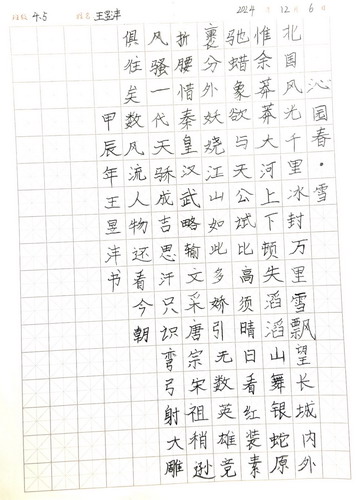 班级 4.5 姓名 王昱沣 2024年12月6日
沁园春·雪
北国风光千里冰封万里雪飘望长城内外
惟余莽莽大河上下顿失滔滔山舞银蛇原
驰蜡象欲与天公试比高须晴日看红装素
裹分外妖娆江山如此多娇引无数英雄竞
折腰惜秦皇汉武略输文采唐宗宋祖稍逊
风骚一代天骄成吉思汗只识弯弓射大雕
俱往矣数风流人物还看今朝
甲辰年王昱沣书